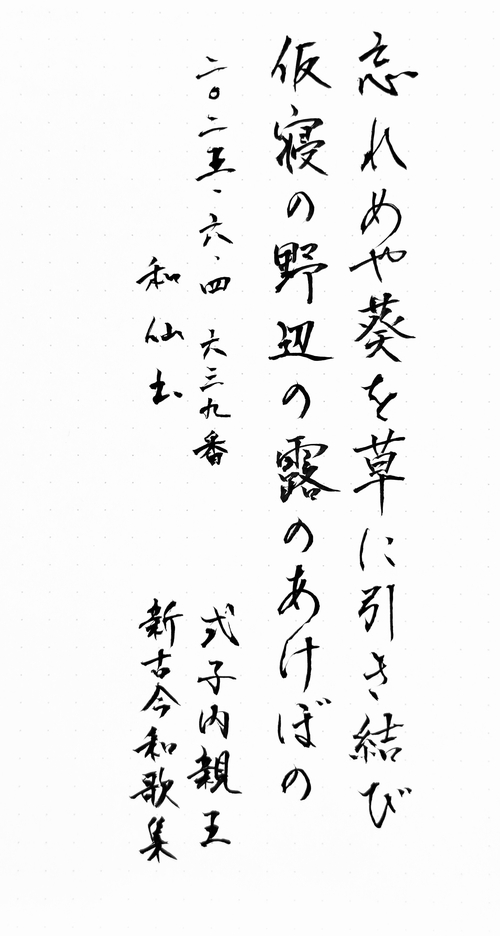 忘れめや葵を草に引き結び
仮寝の野辺の露のあけぼの
二〇二五、六、四 六三九番
式子内親王
和仙书
新古今和歌集